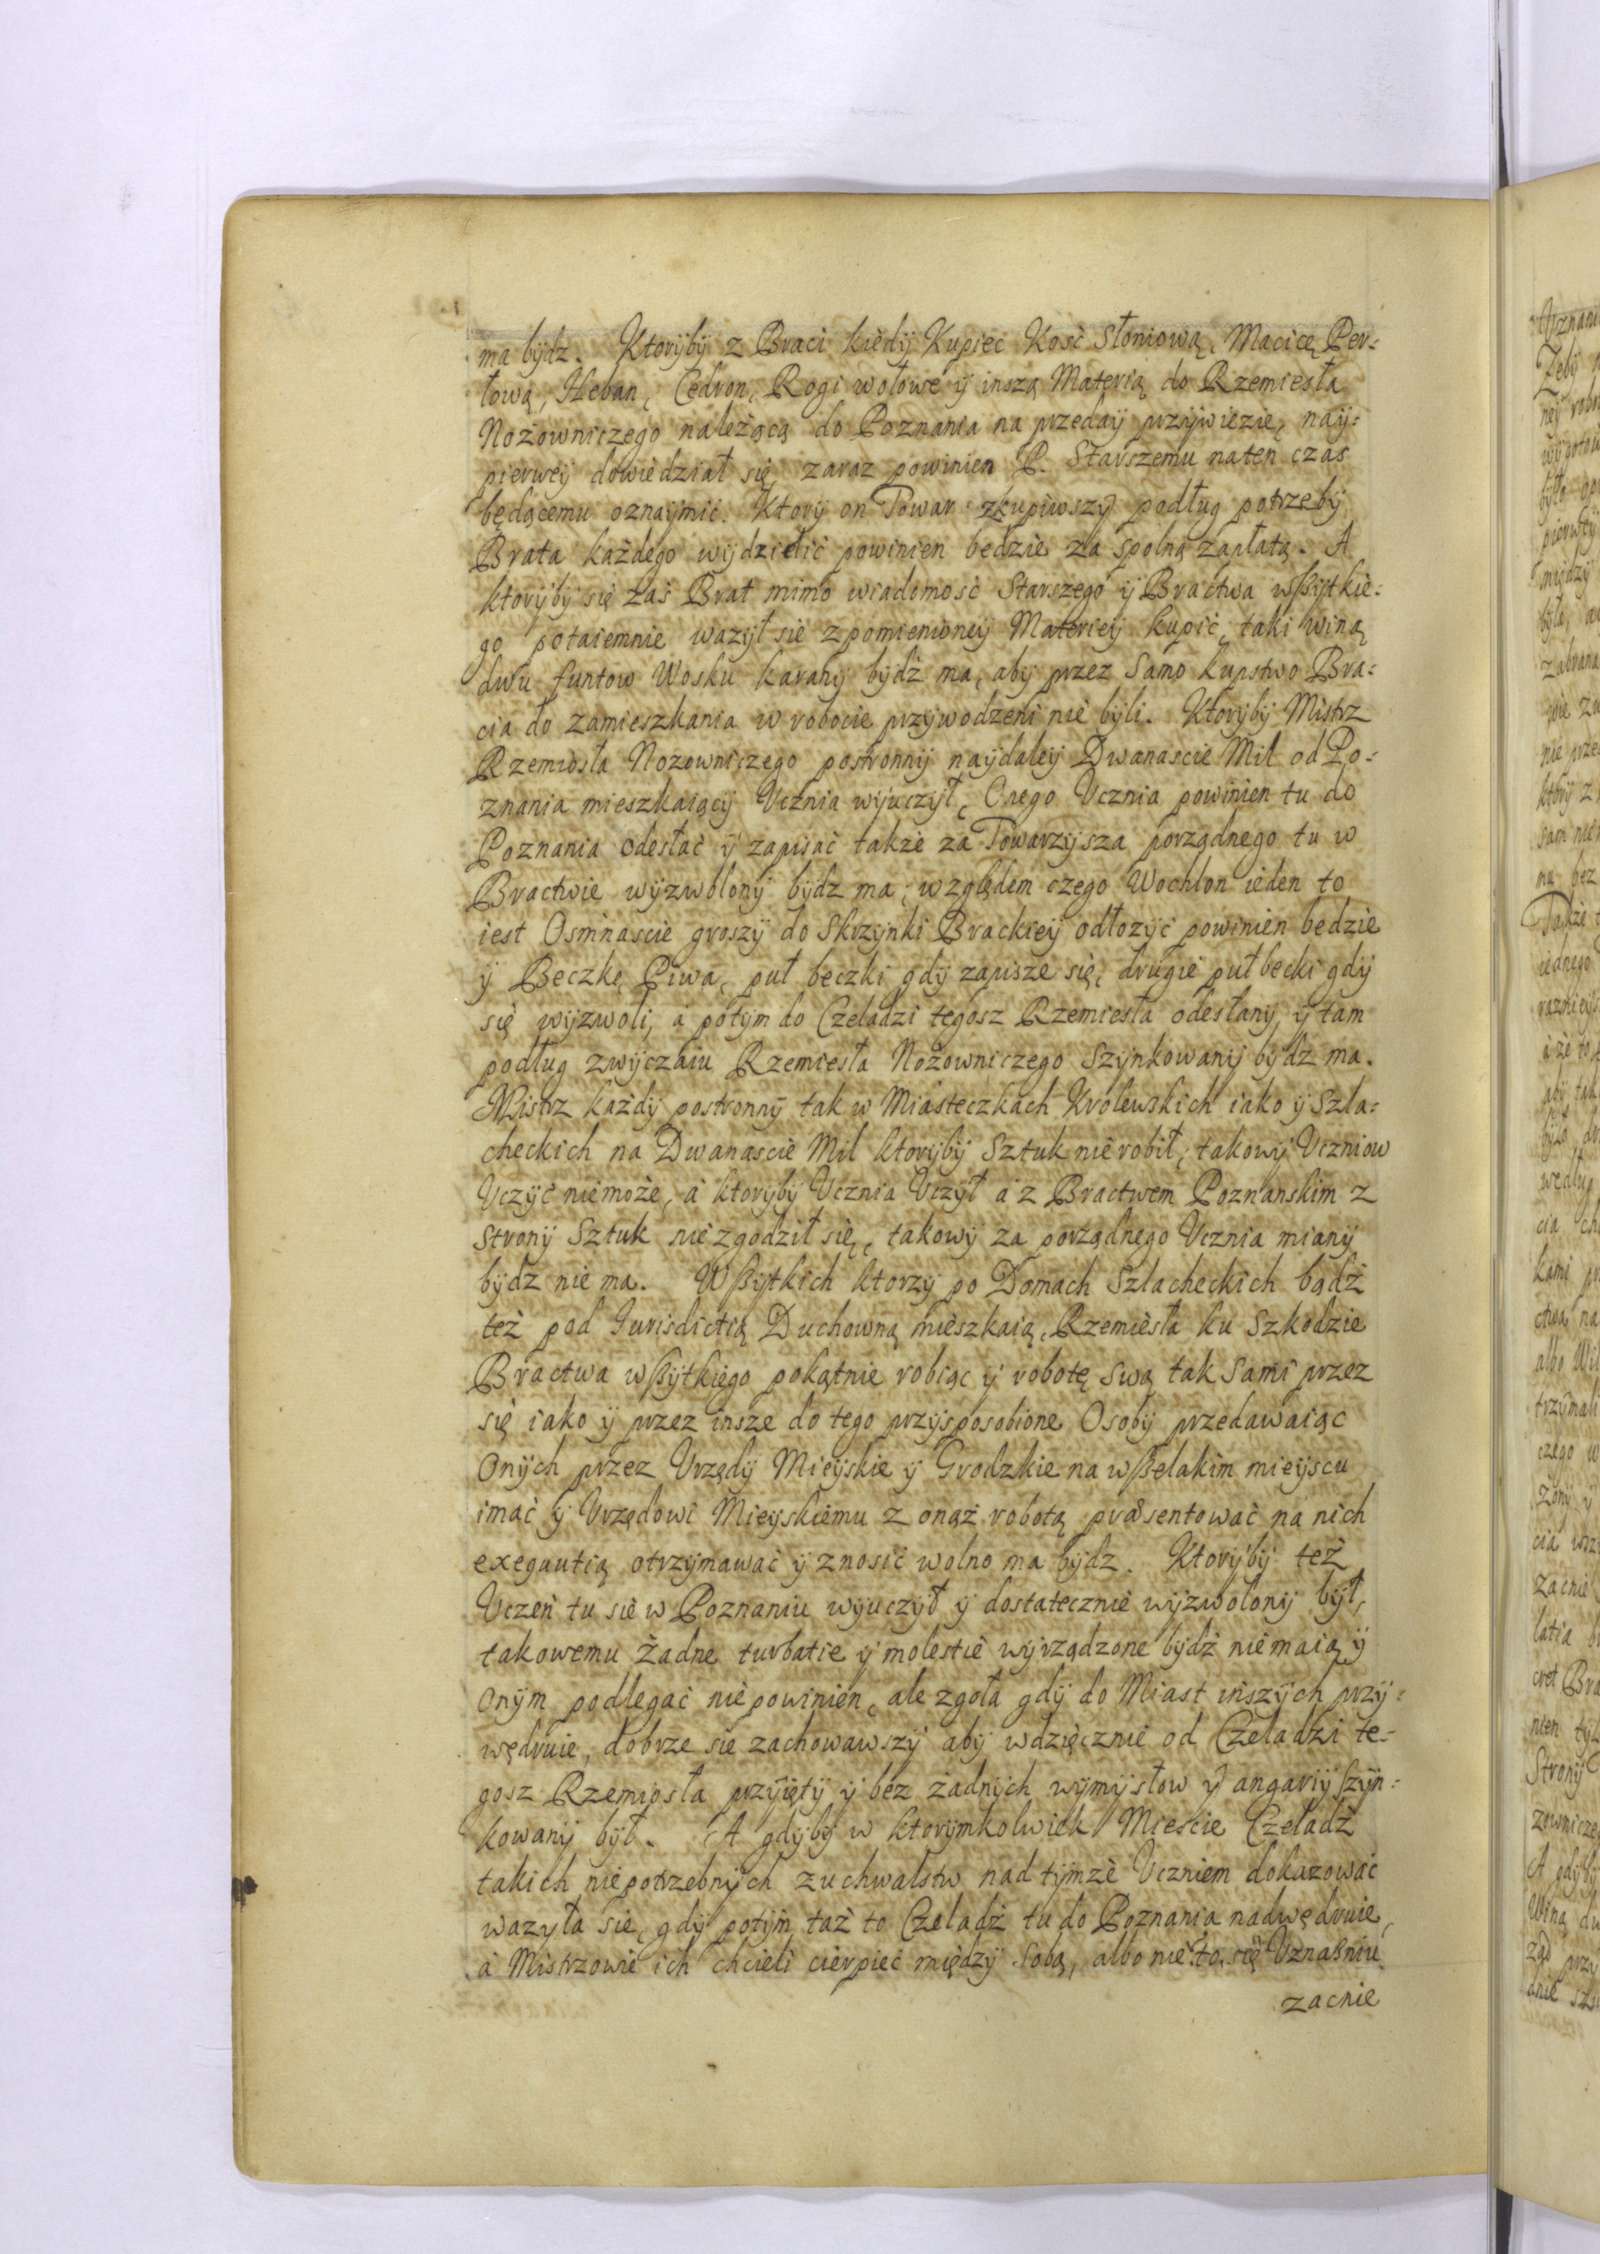 ma bydz. Ktoryby z Braci kiedy Kupiec Kość Słoniową, Macicę Per=
łową, Heban, Cedron, Rogi wołowe y inszą Materią do Rzemiesła
Nożowniczego należącą do Poznania na przeday przywiezie, nay=
pierwey dowiedział się, zaraz powinien P. Starszemu naten czas
będącemu oznaymić. Ktory on Towar zkupiwszy podług potrzeby
Brata każdego wydzielić powinien bedzie za spolną zapłatą. A
ktoryby się zaś Brat mimo wiadomość Starszego y Bractwa wßytkie=
go potaiemnie ważył sie zpomienioney Materiey kupić, taki winą
dwu funtow Wosku karany bydź ma, aby przez Samo kupstwo Bra=
cia do zamieszkania w robocie przywodzeni nie byli. Ktoryby Mistrz
Rzemiosła Nozowniczego postronny naydaley Dwanascie Mil od Po=
znania mieszkaiący Ucznia wyuczył, Onego Ucznia powinien tu do
Poznania odesłać y zapisać także za Towarzysza porządnego tu w
Bractwie wyzwolony bydz ma, względem czego Wochlon ieden to
iest Osmnascie groszy do Skrzynki Brackiey odłożyć powinien bedzie
y Beczkę Piwa, puł beczki gdy zapisze się, drugie puł becki gdy
się wyzwoli, a potym do Czeladzi tegosz Rzemiesła odesłany y tam
podług zwyczaiu Rzemiesła Nożowniczego Szynkowany bydz ma.
Mistrz każdy postronny tak w Miasteczkach Krolewskich iako y Szla=
checkich na Dwanascie Mil ktoryby Sztuk nie robił, takowy Uczniow
Uczyć niemoże, a ktoryby Ucznia Uczył a z Bractwem Poznanskim z
strony Sztuk nie zgodził się, takowy za porządnego Ucznia miany
bydz nie ma. Wßytkich ktorzy po Domach Szlacheckich bądź
też pod Iurisdictią Duchowną mieszkaią, Rzemiesła ku Szkodzie
Bractwa wßytkiego pokątnie robiąc y robotę swą tak sami przez
się iako y przez insze do tego przysposobione Osoby przedawaiąc
Onych przez Urzędy Mieyskie y Grodzkie na wßelakim mieyscu
imać y Urzędowi Mieyskiemu z onąż robotą præsentować na nich
exegautią otrzymawać y znosić wolno ma bydz. Ktoryby też
Uczeń tu sie w Poznaniu wyuczył y dostatecznie wyzwolony był,
takowemu żadne turbatie y molestie wyrządzone bydź nie maią y
Onym podlegać nie powinien, ale zgoła gdy do Miast inszych przy=
wędruie, dobrze sie zachowawszy aby wdzięcznie od Czeladzi te=
gosz Rzemiosła przyięty y bez żadnych wymysłow y angariy szyn=
kowany był. A gdyby w ktorymkolwiek Mieście Czeladź
takich niepotrzebnych zuchwalstw nad tymże Uczniem dokazować
ważyła sie, gdy potym taż to Czeladż tu do Poznania nadwędruie,
a Mistrzowie ich chcieli cierpieć między sobą, albo nie to się Uznaniu
zacnie